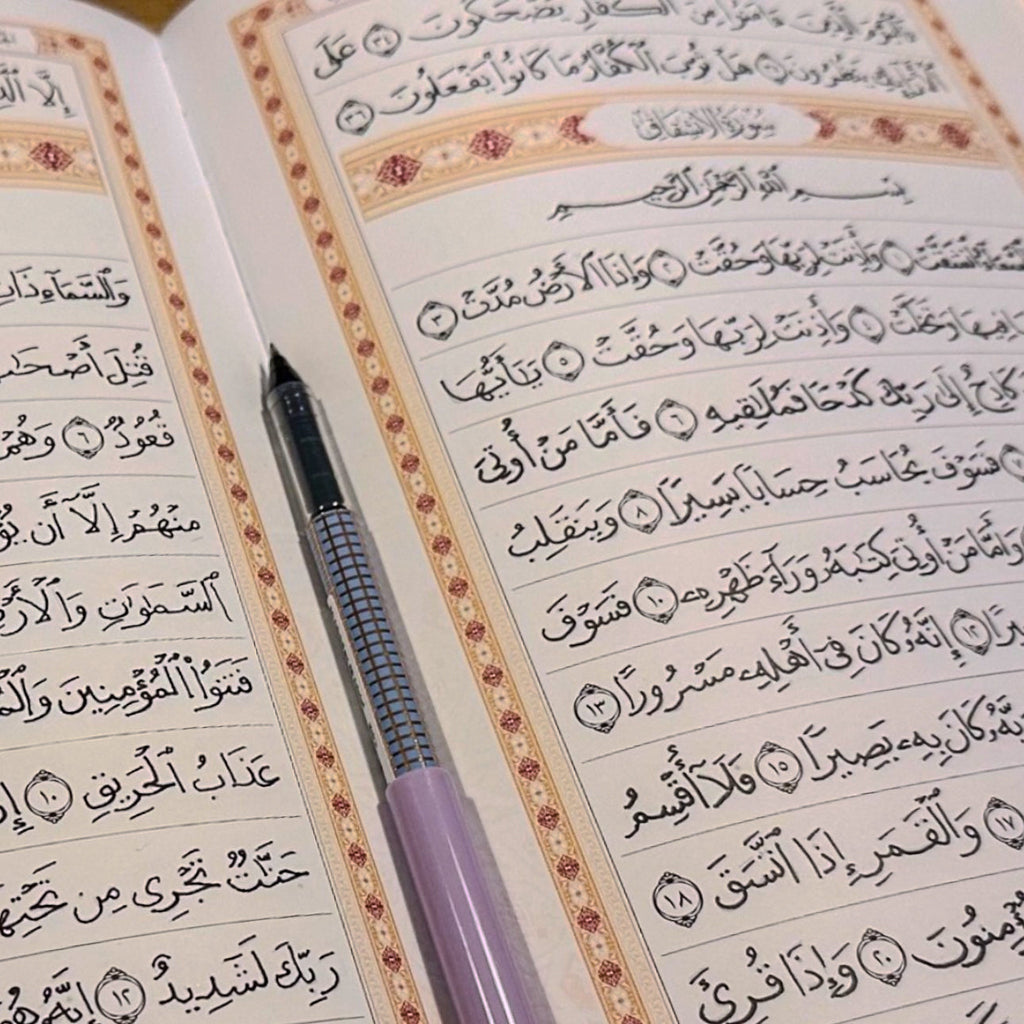 فَٱلۡيَوۡمَ ٱلَّذِينَ ءَامَنُواْ مِنَ ٱلۡكُفَّارِ يَضۡحَكُونَ ٣٤ عَلَى
ٱلۡأَرَآئِكِ يَنظُرُونَ ٣٥ هَلۡ ثُوِّبَ ٱلۡكُفَّارُ مَا كَانُواْ يَفۡعَلُونَ ٣٦
سُورَةُ الانشِقَاقِ
بِسۡمِ ٱللَّهِ ٱلرَّحۡمَٰنِ ٱلرَّحِيمِ
ٱلسَّمَآءُ ٱنشَقَّتۡ ١ وَأَذِنَتۡ لِرَبِّهَا وَحُقَّتۡ ٢ وَإِذَا ٱلۡأَرۡضُ مُدَّتۡ ٣
مَا فِيهَا وَتَخَلَّتۡ ٤ وَأَذِنَتۡ لِرَبِّهَا وَحُقَّتۡ ٥ يَٰٓأَيُّهَا
كَادِحٌ إِلَىٰ رَبِّكَ كَدۡحٗا فَمُلَٰقِيهِ ٦ فَأَمَّا مَنۡ أُوتِيَ
٧ فَسَوۡفَ يُحَاسَبُ حِسَابٗا يَسِيرٗا ٨ وَيَنقَلِبُ
وَأَمَّا مَنۡ أُوتِيَ كِتَٰبَهُۥ وَرَآءَ ظَهۡرِهِۦ ١٠ فَسَوۡفَ
١٢ إِنَّهُۥ كَانَ فِيٓ أَهۡلِهِۦ مَسۡرُورًا ١٣
كَانَ بِهِۦ بَصِيرٗا ١٥ فَلَآ أُقۡسِمُ
١٧ وَٱلۡقَمَرِ إِذَا ٱتَّسَقَ ١٨
٢٠ وَإِذَا قُرِئَ
إِلَّا
وَٱلسَّمَآءِ ذَاتِ
قُتِلَ أَصۡحَٰبُ
قُعُودٞ ٦ وَهُمۡ
مِنۡهُمۡ إِلَّآ أَن
ٱلسَّمَٰوَٰتِ وَٱلۡأَرۡضِ
فَتَنُواْ ٱلۡمُؤۡمِنِينَ
عَذَابُ ٱلۡحَرِيقِ ١٠
جَنَّٰتٞ تَجۡرِي مِن تَحۡتِهَا
رَبِّكَ لَشَدِيدٌ ١٢ إِنَّهُۥ